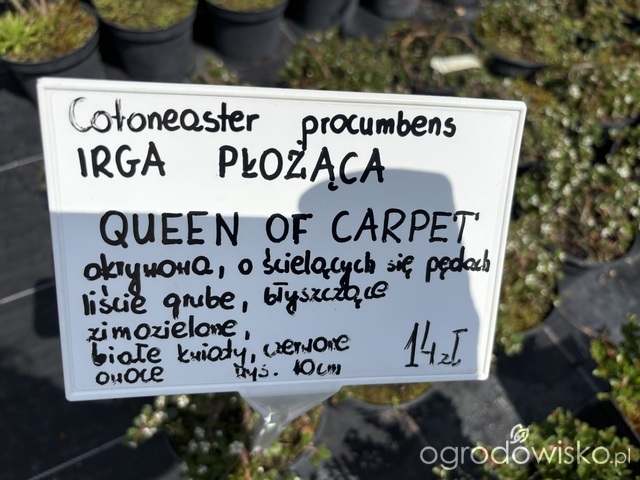 Cotoneaster procumbens
IRGA PŁOŻĄCA
QUEEN OF CARPET
okrywowa, o ścielących się pędach
liście grube, błyszczące
zimozielone,
białe kwiaty, czerwone
owoce wys. 10cm
14zł
ogrodowisko.pl